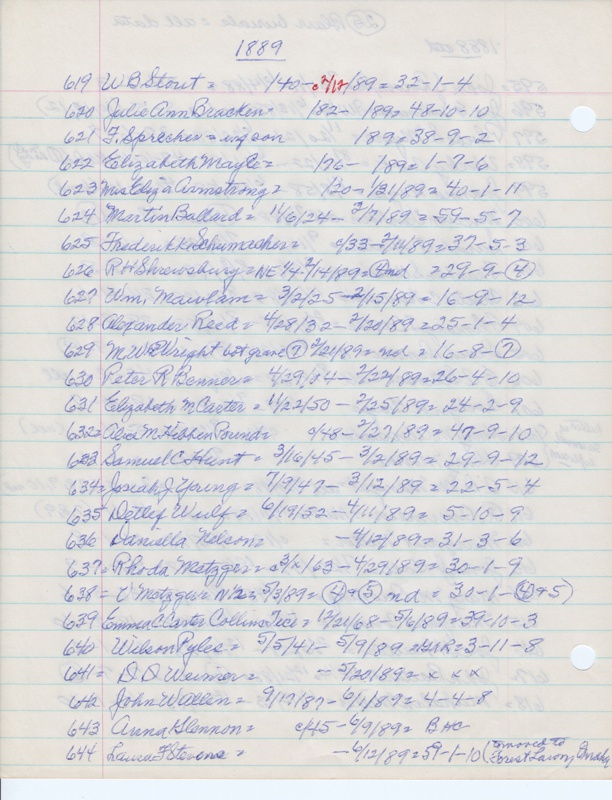 1889
619 W B Stout = /40 - c2/12/89 = 32-1-4
620 Julie Ann Bracken - /82 - /89 = 48-10-10
621 F. Sprecher = inf son /89 = 38-9-2
622 Elizabeth Mayle = /76 - /89 = 1-7-6
623 Mrs Eliza Armstrong = /20 - 1/31/89 = 40-1-11
624 Martin Ballard = 11/6/24 - 2/7/89 = 59-5-7
625 Frederick Schumacher = c/33 - 2/10/89 = 37-5-3
626 R H Shrewsbury = NE 1/4 - 2/14/89 = (4) nd = 29-9-(4)
627 Wm. Mawlam = 3/2/25 - 2/15/89 = 16-9-12
628 Alexander Reed = 4/28/32 - 2/20/89 = 25-1-4
629 M W Wright bot grave (7) 2/21/89 = nd = 16-8-(7)
630 Peter R Benner = 4/29/04 - 2/22/89 = 26-4-10
631 Elizabeth M Carter = 11/22/50 - 2/25/89 = 24-2-9
632 = M Hibben Pound = c/48 - 2/27/89 = 47-9-10
633 Samuel C Hunt = 3/16/45 - 3/2/89 = 29-9-12
634 = Josiah J Young = 7/9/47 - 3/12/89 = 22-5-4
635 Detlef Wulf = 6/19/52 - 4/11/89 = 5-10-9
636 Daniella Nelson = - 4/12/89 = 31-3-6
637 = Rhoda Metzger = c3/x/63 - 4/29/89 = 30-1-9
638 = C Metzger = N 1/2 = 5/3/89 = (4) + (5) nd = 30-1-(4)+5)
639 Emma C Carter Collins Tice = 12/21/68 - 5/6/89 = 39-10-3
640 Wilson Pyles = 5/5/41 - 5/9/89 = GAR = 3-11-8
641 = D D Weimer = - 5/20/89 = x x x
642 John Wallen = 9/17/87 - 6/1/89 = 4-4-8
643 Anna Glennon = c/45 - 6/9/89 = B AC
644 Laura F Stevens = - 6/12/89 = 59-1-10 (removed to Forest Lawn, Omaha